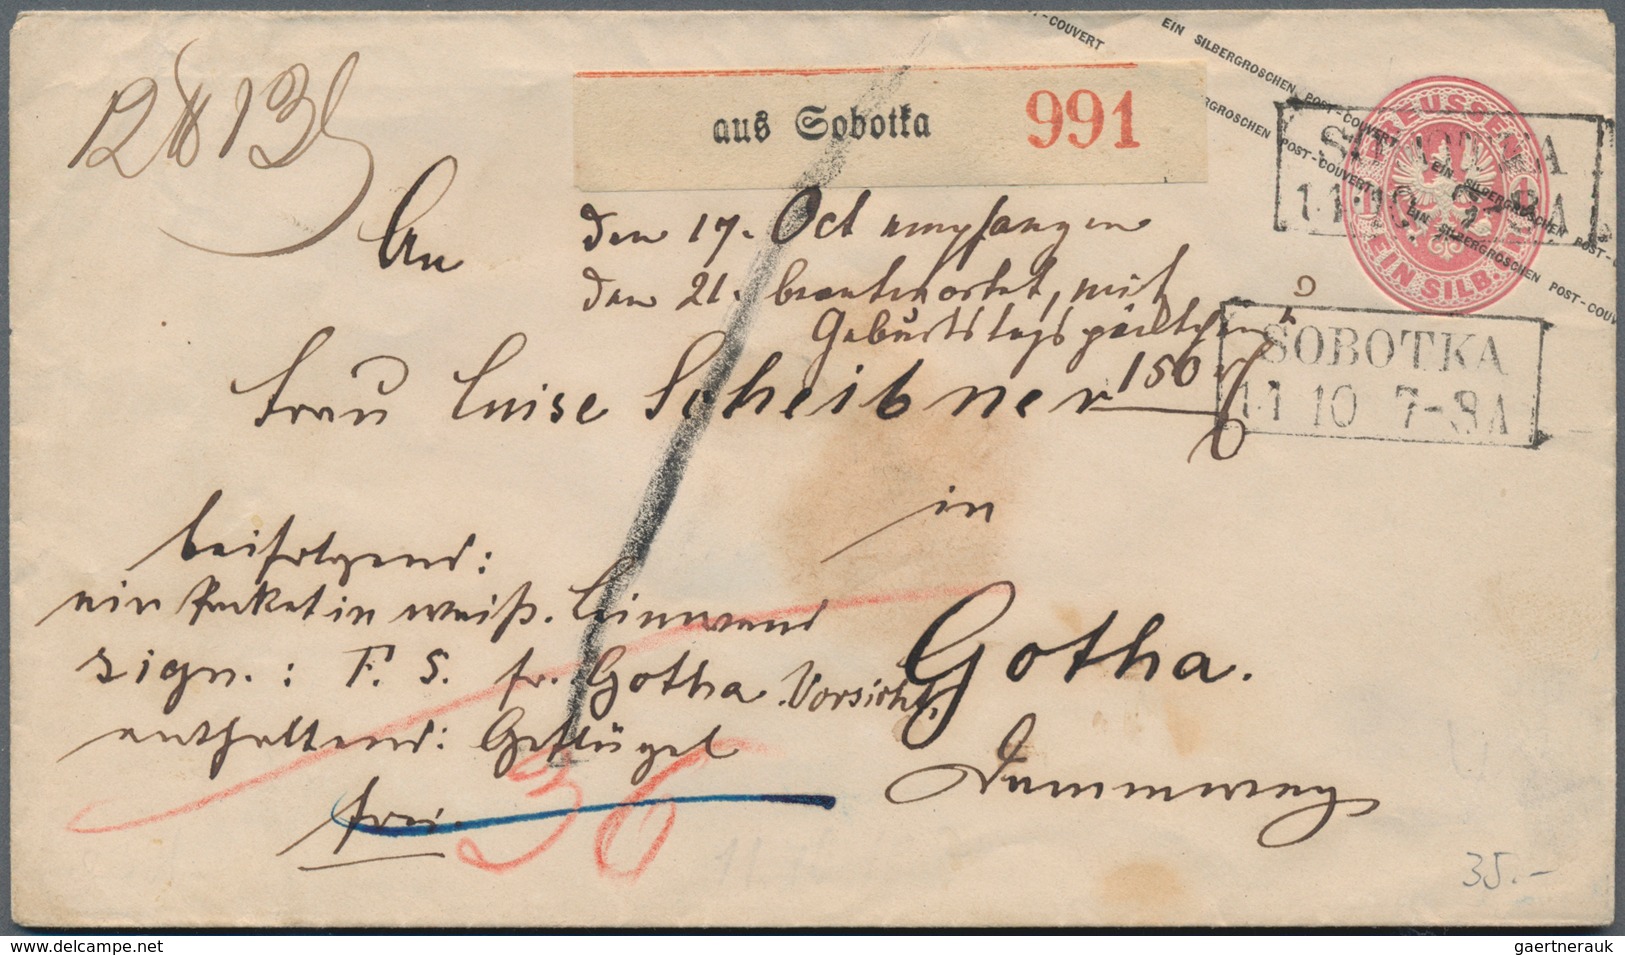 EIN SILBERGROSCHEN POST-COUVERT EIN SILBERGROSCHEN POST-COUVERT
PREUSSEN
EIN SILB. GR.
aus Sobotka 991
SOBOTKA
11 10 7-8A
12 13
An
den 17. Oct empfangen
den 21. beantwortet, mit
Geburtstagspäckchen
Frau Luise Scheibner
150
SOBOTKA
11 10 7-8A
in
Gotha.
Dammweg
beifolgend:
ein Paket in weiß. Leinwand
sign.: F. S. fr. Gotha. Vorsicht,
enthaltend: Geflügel
frei.
36
35.-
delcampe.net
gaertnerauk